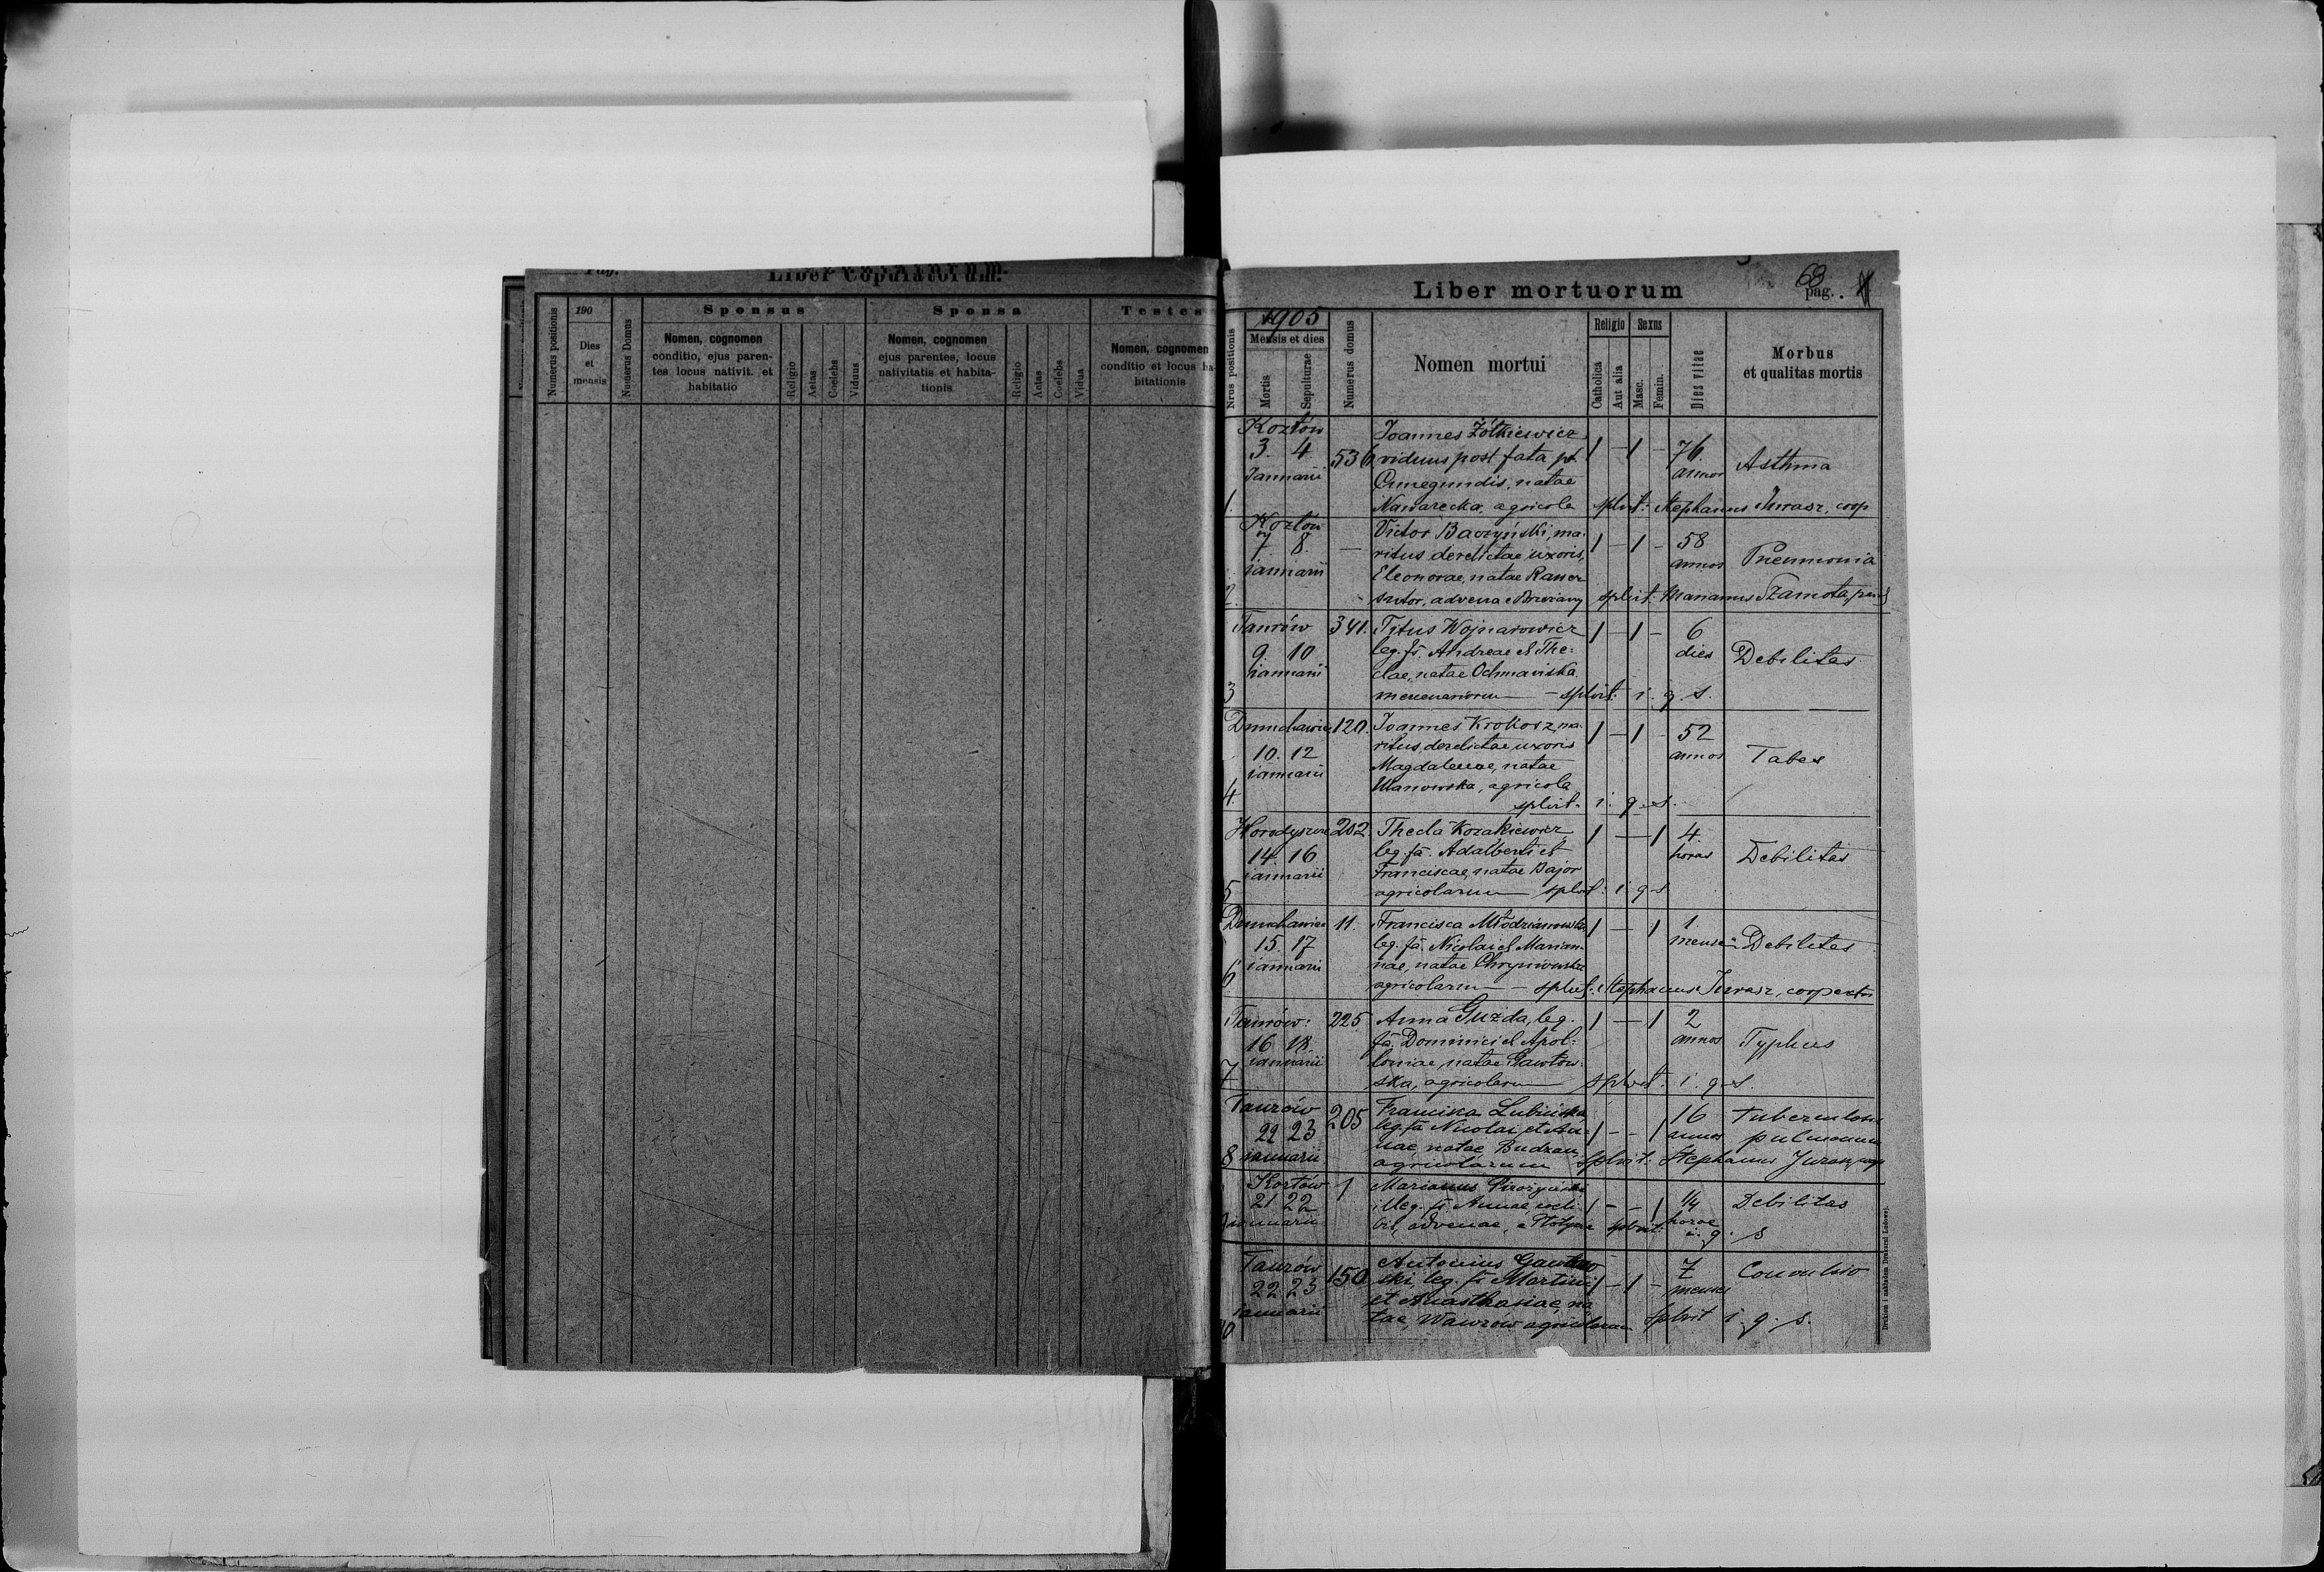 Pag.
Liber Copulatorum.
Numerus positionis
190
Dies
et
mensis
Numerus Domus
Sponsus
Nomen, cognomen
conditio, ejus paren-
tes locus nativit. et
habitatio
Religio
Aetas
Coelebs
Viduus
Sponsa
Nomen, cognomen
ejus parentes, locus
nativitatis et habita-
tionis
Religio
Aetas
Coelebs
Vidua
Testes
Nomen, cognomen
conditio et locus ha-
bitationis
Liber mortuorum
68
pag.
Nrus positionis
1905
Mensis et dies
Mortis
Sepulturae
Numerus domus
Nomen mortui
Religio
Catholica
Aut alia
Sexus
Masc.
Femin.
Dies vitae
Morbus
et qualitas mortis
1.
Kozłów
3. 4
Januarii
536
Joannes Żółkiewicz
viduus post fata pt
Cunegundis, natae
Nawarecka, agricola
1 - 1 -
76.
annos
Asthma
splvit: Stephanus Jurasz, coop
2.
Kozłów
7 8.
januarii
—
Victor Baczyński, ma-
ritus derelictae uxoris,
Eleonorae, natae
sutor, advena e
1 - 1 -
58
annos
Pneumonia
splvit: Marianus Szamota
3
Taurów
9. 10
januarii
341.
Titus Wojnarowicz
leg. fs. Andreae et The-
clae, natae
1 - 1 -
6
dies
Debilitas
splvit: i. q. s.
4.
120.
10. 12
januarii
Joannes Krokosz, ma-
ritus derelictae uxoris
Magdalenae, natae
Ulanowska, agricola
1 - 1 -
52
annos
Tabes
splvit. i. q. s.
5
202.
14. 16
januarii
Thecla Kozakiewicz
leg. fa. Adalberti et
Franciscae, natae Bajor
agricolarum
1 — 1
4.
horas
Debilitas
splvit: i. q. s
6
11.
15. 17
januarii
Francisca Młodzianowska
leg. fa. Nicolai et Marian-
nae, natae
agricolarum
1 — 1
1.
mense
Debilitas
splvit: Stephanus Jurasz, cooperator
7
Taurów:
16 18.
januarii
225.
Anna Guzda, leg.
fa. Dominici et Apol-
loniae, natae Gawłow-
ska, agricolarum
1 — 1
2
annos
Typhus
splvit. i. q. s.
8
Taurów
22 23
januarii
205
Francisca Lubińska
leg. fa Nicolai et An-
nae, natae Budzan,
agricolarum
1 - - 1
16
annos
Tuberculosis
pulmonum
splvit: Stephanus Jurasz, coop
9
Kozłów
21 22
januarii
1
Marianus
illeg. fs Annae coeli-
bis, advenae, e
1 - - 1
1/4
horae
Debilitas
splvit: i. q. s
10
Taurów
22 23
januarii
150
Antonius Gawłow-
ski leg. fs Martini
et Anasthasiae, na-
tae, Wawrów agricolarum
1 - 1 -
7
menses
Convulsio
splvit i. q. s.
Drukiem i nakładem Drukarni Ludowej.